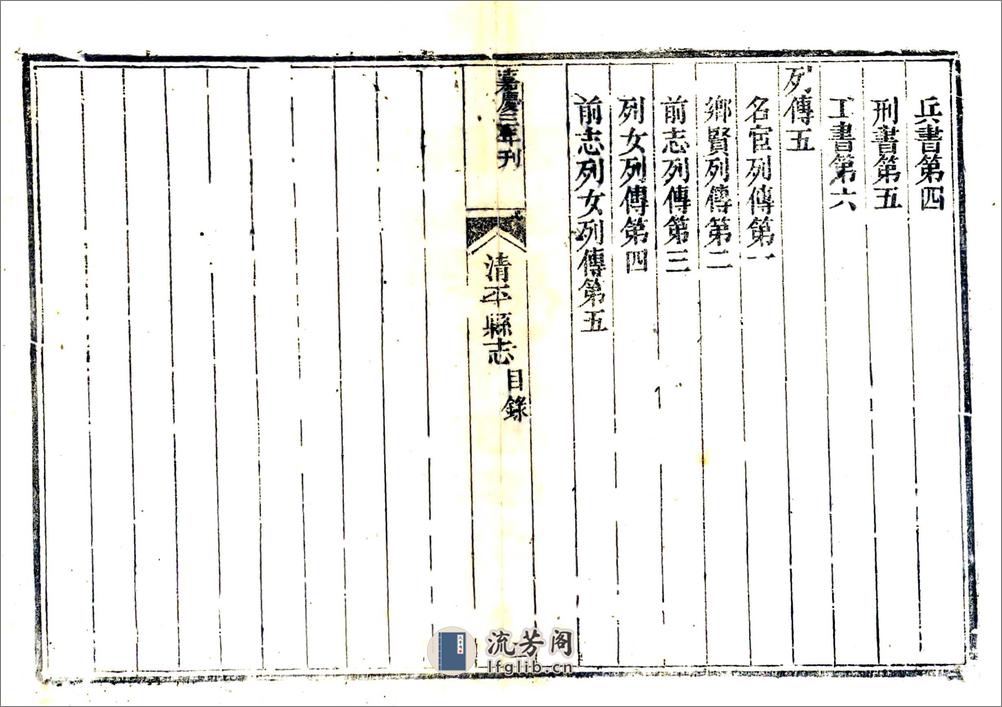 兵書第四
刑書第五
工書第六
列傳五
名宦列傳第一
鄉賢列傳第二
前志列傳第三
列女列傳第四
前志列女列傳第五
嘉慶三年刊
清平縣志
目錄
流芳阁
lfglib.cn